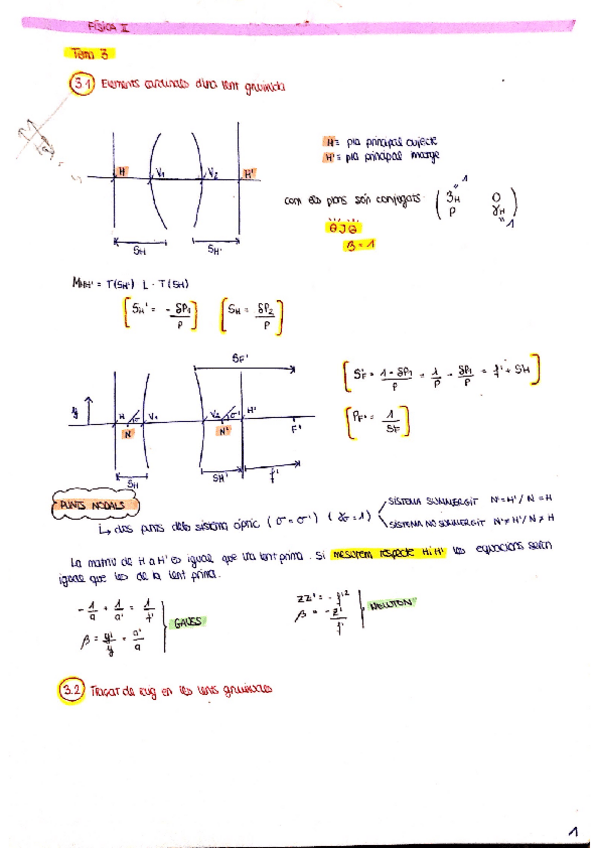 FÍSICA II
Tema 3
3.1 Elements cardinals d'una lent gruixuda
H = pla principal objecte
H' = pla principal imatge
H V1 V2 H'
com els plans són conjugats ( βH 0
P γH )
" 1
" 1
β = 1
SH SH'
MHH' = T(SH') L · T(SH)
[SH' = - δP1/P] [SH = δP2/P]
SF'
[SF' = 1 - δP1/P = 1/P - δP1/P = f' + SH]
y H σ V1 V2 σ' H'
N N' F'
[PF' = 1/SF]
SH SH' f'
PUNTS NODALS
↳ dos punts del sistema òptic (σ = σ') (γσ = 1)
SISTEMA SUMMERGIT N' = H' / N = H
SISTEMA NO SUMMERGIT N' ≠ H' / N ≠ H
La matriu de H a H' és igual que una lent prima. Si mesurem respecte H i H' les equacions seran
igual que les de la lent prima.
- 1/a + 1/a' = 1/f'
β = y'/y = a'/a
GAUSS
zz' = - f'²
β = - z'/f'
NEWTON
3.2 Traçat de raig en les lents gruixudes
1